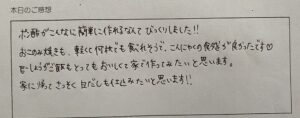 本日のご感想
お酢がこんなに簡単に作れるなんてびっくりしました!!
おこのみ焼きも、軽くて何枚でも食べれそうで、こんにゃくの食感が良かったです♡
甘〜しょうがご飯もとってもおいしくて家で作ってみたいと思います。
家に帰ってさっそく白だしも仕込みたいと思います!!